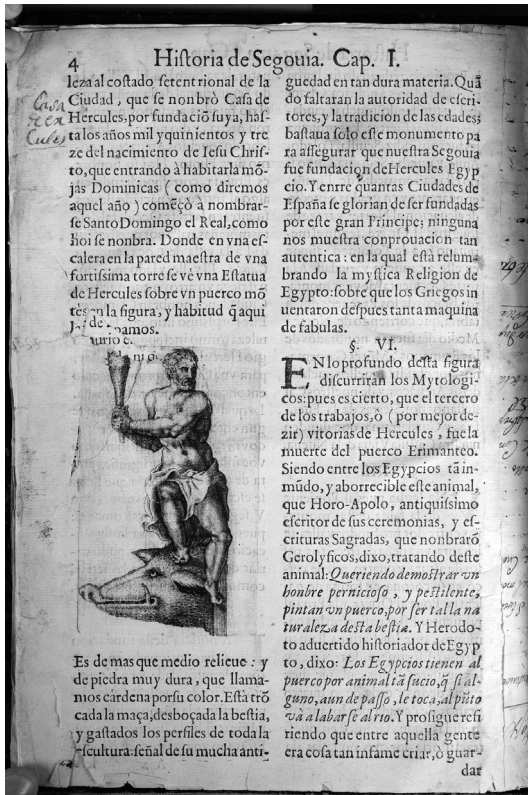 4 Historia de Segouia. Cap. I.
leza al costado setentrional de la
Ciudad, que se nonbrò Casa de
Hercules, por fundaciõ suya, has-
ta los años mil y quinientos y tre
ze del nacimiento de Iesu Chris-
to, que entrando à habitarla mõ-
jas Dominicas (como diremos
aquel año) comẽçò à nombrar-
se Santo Domingo el Real, como
hoi se nonbra. Donde en vna es-
calera en la pared maestra de vna
fortissima torre se vé vna Estatua
de Hercules sobre vn puerco mõ
tes en la figura, y hábitud q̃ aqui
pamos.
Casa
de ex
Cules
Es de mas que medio relieue: y
de piedra muy dura, que llama-
mos cárdena por su color. Està trõ
cada la maça, desboçada la bestia,
y gastados los perfiles de toda la
escultura: señal de su mucha anti-
guedad en tan dura materia. Quã
do faltaran la autoridad de escri-
tores, y la tradicion de las edades;
bastaua solo este monumento pa
ra assegurar que nuestra Segouia
fue fundacion de Hercules Egyp
cio. Y entre quantas Ciudades de
España se glorian de ser fundadas
por este gran Principe; ninguna
nos muestra conprouacion tan
autentica: en la qual està relum-
brando la mystica Religion de
Egypto: sobre que los Griegos in
uentaron despues tanta maquina
de fabulas.
§. VI.
EN lo profundo desta figura
discurriran los Mytologi-
cos: pues es cierto, que el tercero
de los trabajos, ò (por mejor de-
zir) vitorias de Hercules, fue la
muerte del puerco Erimanteo.
Siendo entre los Egypcios tã in-
mũdo, y aborrecible este animal,
que Horo-Apolo, antiquissimo
escritor de sus ceremonias, y es-
crituras Sagradas, que nonbrarõ
Gerolyficos, dixo, tratando deste
animal: Queriendo demostrar vn
honbre pernicioso, y pestilente,
pintan vn puerco, por ser tal la na
turaleza desta bestia. Y Herodo-
to aduertido historiador de Egyp
to, dixo: Los Egypcios tienen al
puerco por animal tã sucio, q̃ si al-
guno, aun de passo, le toca, al pũto
và a labarse al rio. Y prosigue refi
riendo que entre aquella gente
era cosa tan infame criar, ò guar-
dar